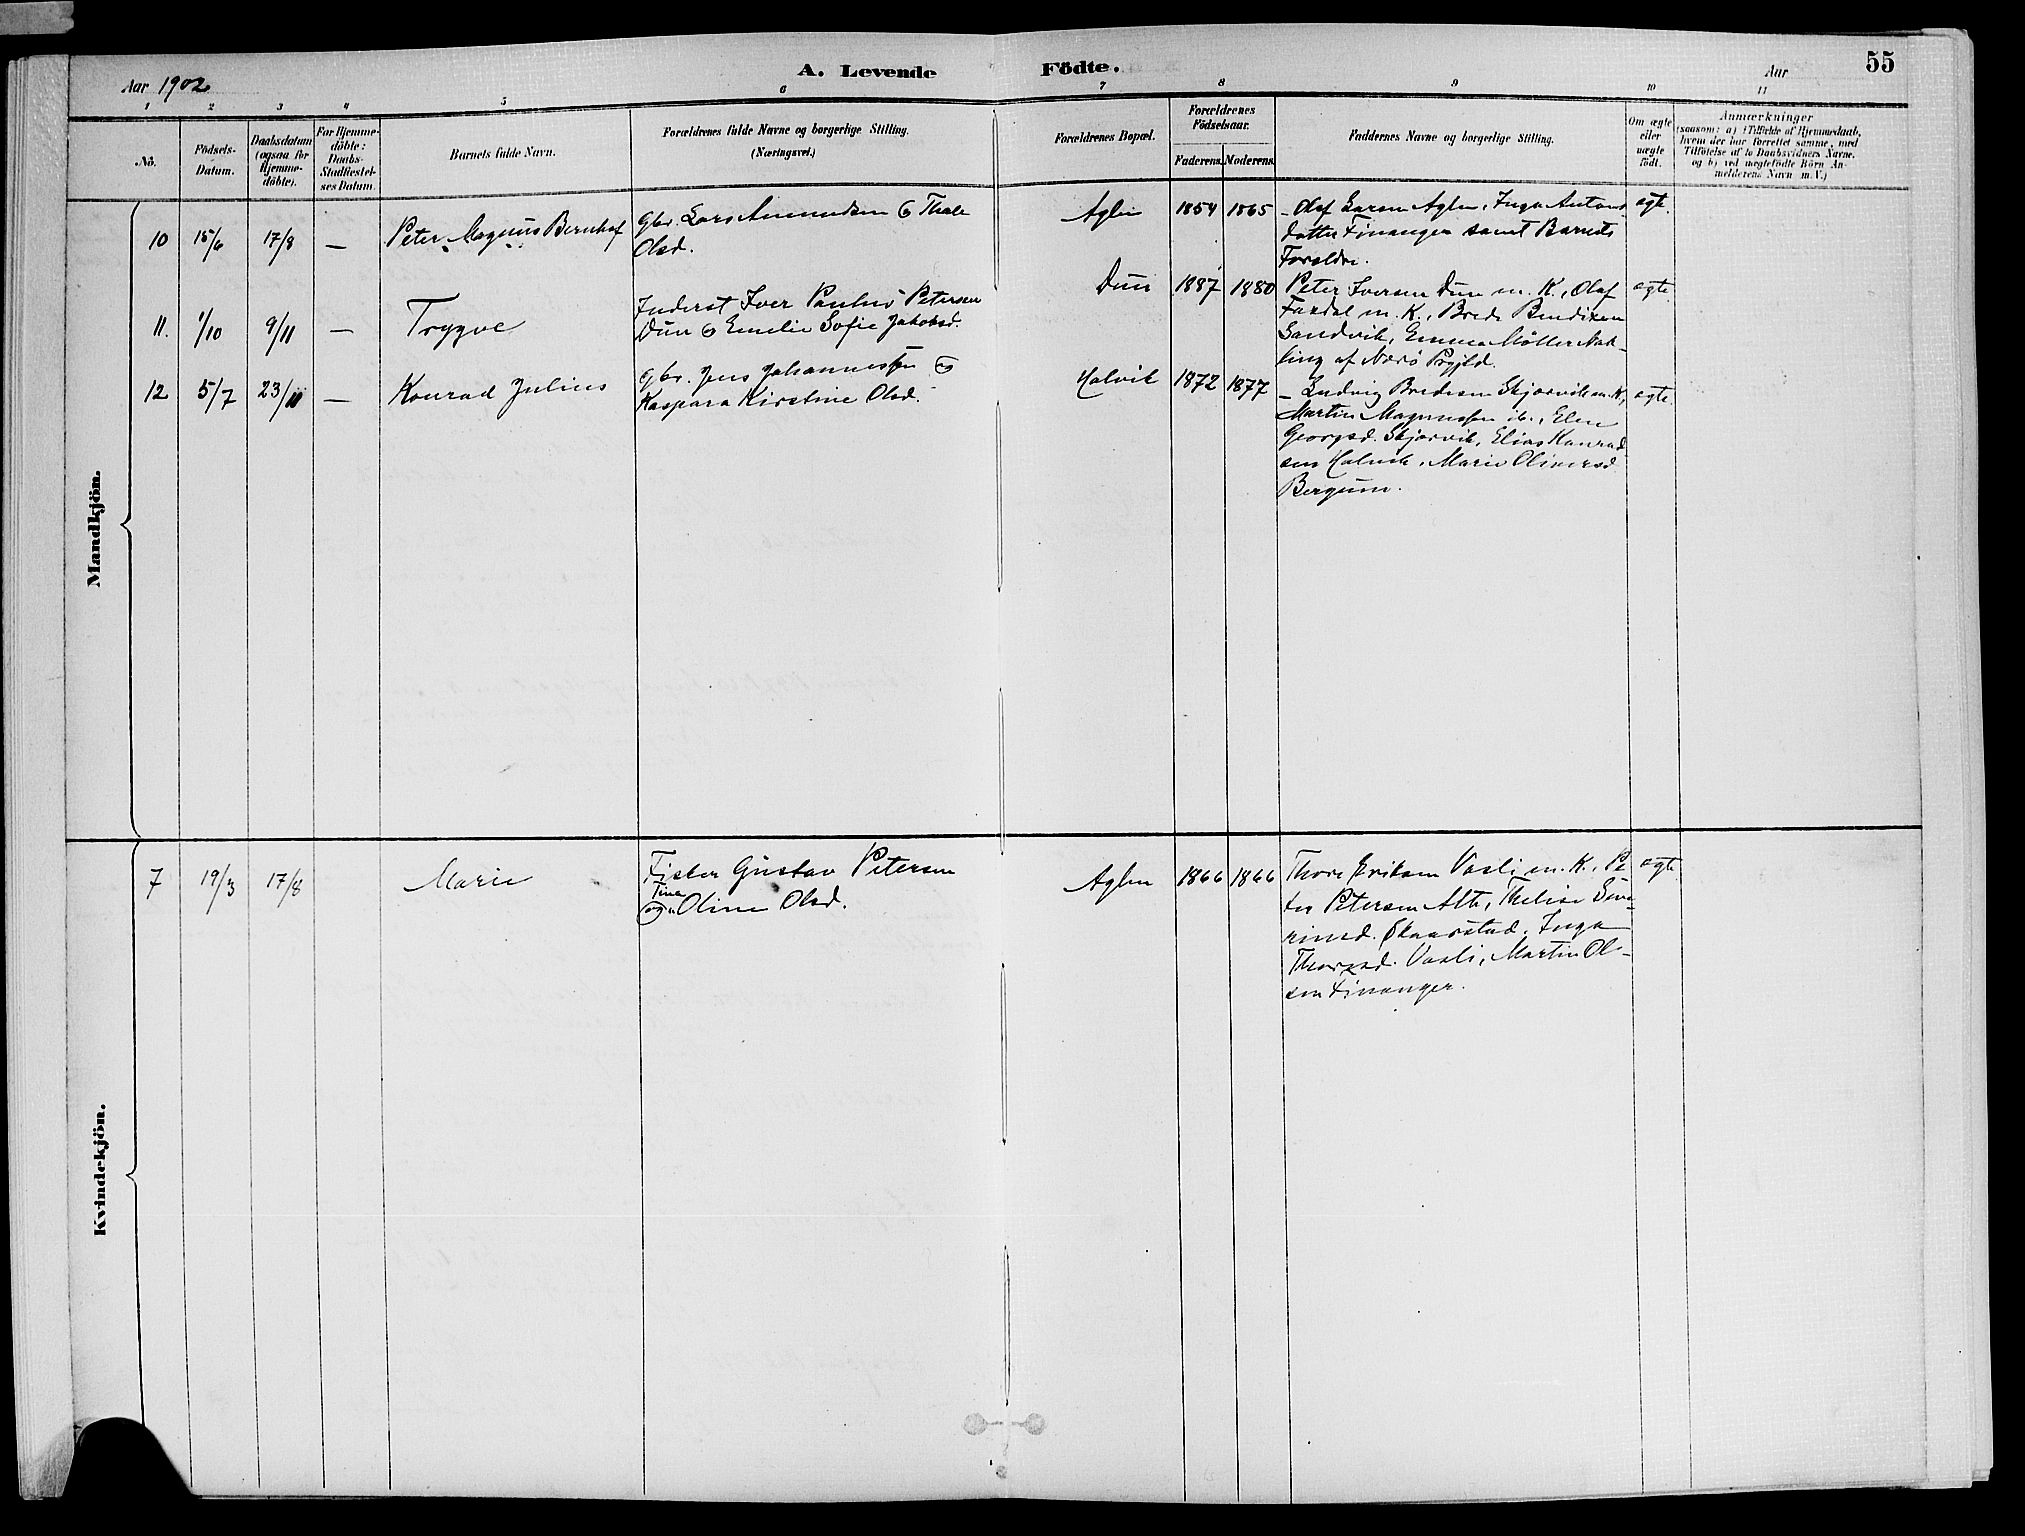 55
Aar 1902
A. Levende Födte.
Aar
1 2 3 4 5 6 7 8 9 10 11
No.
Födsels-Datum.
Daabsdatum (ogsaa for Hjemme-döbte).
For Hjemme-döbte: Daabs-Stadfæstel-ses Datum.
Barnets fulde Navn.
Forældrenes fulde Navne og borgerlige Stilling. (Næringsvei.)
Forældrenes Bopæl.
Forældrenes Födselsaar.
Faderens. Moderens.
Faddernes Navne og borgerlige Stilling.
Om ægte eller uægte födt.
Anmærkninger
(saasom: a) i Tilfælde af Hjemmedaab,
hvem der har forrettet samme, med
Tilföielse af to Daabsvidners Navne.
og b) ved uægtefödte Börn An-
melderens Navn m. V.)
Mandkjön.
10 15/6 17/8 — Peter Magnus Bernhof
Gbr. Lars Amundsen & Thale
Olsd.
Aglen 1854 1865
– Olaf Larsen Aglen, Inga Antons
datter Finanger samt Barnets
Forældre.
ægte.
11. 1/10 9/11 — Trygve
Inderst Iver Paulus Petersen
Dun & Emelie Sofie Jakobsd.
Dun 1887 1880
Peter Iversen Dun m. K., Olaf
Faxdal m. K., Brede Bendixen
Sandvik, Emma Møller
af Nærö Prgjld.
ægte
12 5/7 23/11 — Konrad Julius
Gbr. Jens Johannessen &
Kaspara Kirstine Olsd.
Halvik 1872 1877
– Ludvig Bredesen Skjærvik m. K,
Martin Magnussen ib., Elen
Georgsd. Skjærvik, Elias Konrad
sen Halvik, Marie Oliversd
Bergum.
ægte.
Kvindekjön.
7 19/3 17/8 Marie
Fisker Gustav Petersen
og Tina Oline Olsd.
Aglen 1866 1866
Thore Eriksen Vasli m. K., Pe-
ter Petersen Alte, Thelise Seve-
rinsd. Skaarstad, Inga
Thoresd. Vasli, Martin Ol-
sen Finanger.
ægte